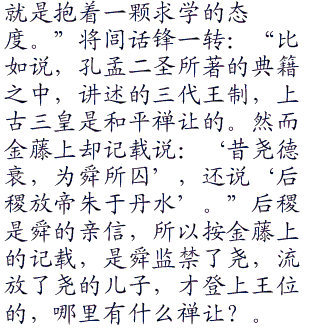 就是抱着一颗求学的态
度。”将闾话锋一转：“比
如说，孔孟二圣所著的典籍
之中，讲述的三代王制，上
古三皇是和平禅让的。然而
金藤上却记载说：‘昔尧德
衰，为舜所囚’，还说‘后
稷放帝朱于丹水’。”后稷
是舜的亲信，所以按金藤上
的记载，是舜监禁了尧，流
放了尧的儿子，才登上王位
的，哪里有什么禅让？。